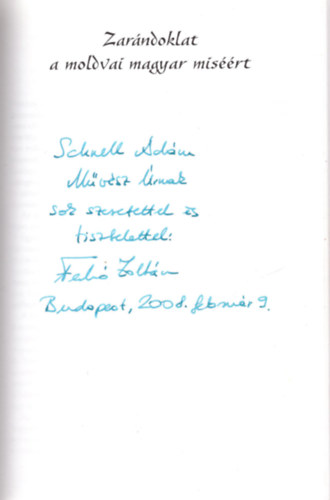 Zarándoklat
a moldvai magyar miséért
Schnell Ádám
Művész Úrnak
sok szeretettel és
tisztelettel:
Fehó Zoltán
Budapest, 2008. február 9.